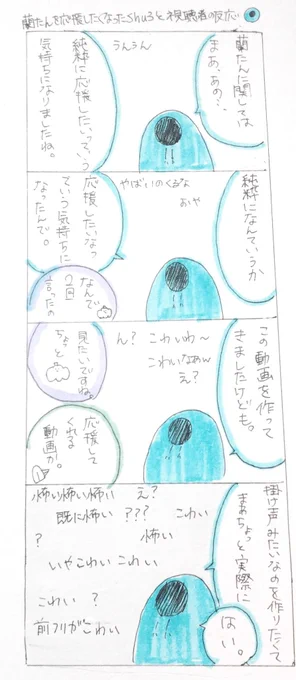 蘭たんを応援したくなったShu3と視聴者の反応
蘭たんに関しては
まぁ、あの…
うんうん
純粋に応援したいっていう
気持ちになりましたね。
純粋になんていうか
やばいのくるな
おや
応援したいなっ
ていう気持ちに
なったんで。
なんで
2回
言ったの
この動画を作って
きましたけども。
こわいわ～
こわいなぁw
え?
ん?
見たいですね。
ちょっと
応援して
くれる
動画が。
掛け声みたいなのを作りたくて
まぁちょっと実際に
はい。
怖い怖い怖い
え?
既に怖い
???
こわい
?
怖い
いやこわい
こわい
こわい
?
前フリがこわい